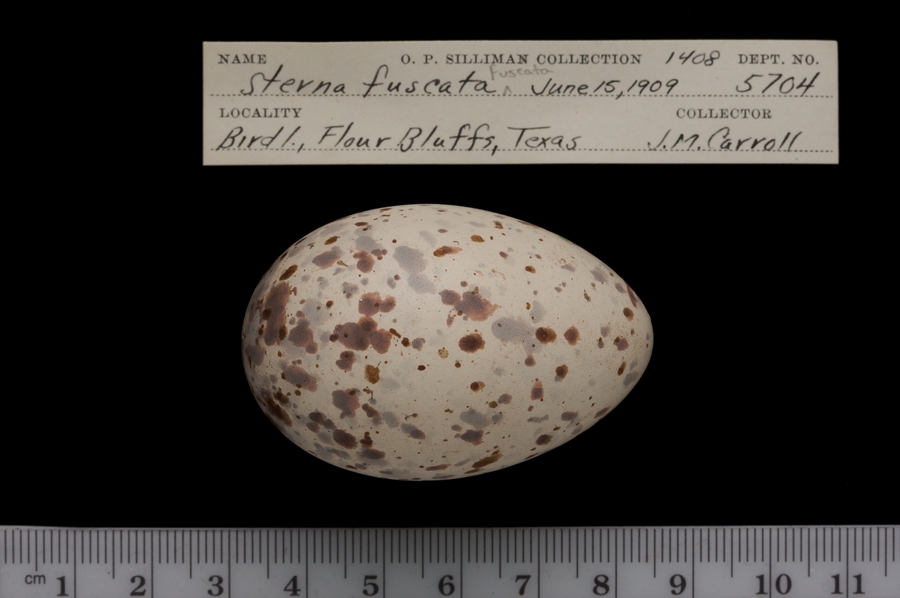 NAME O. P. SILLIMAN COLLECTION 1408 DEPT. NO.
Sterna fuscata ^ fuscata June 15, 1909 5704
LOCALITY COLLECTOR
Bird I., Flour Bluffs, Texas J.M. Carroll
cm 1 2 3 4 5 6 7 8 9 10 11